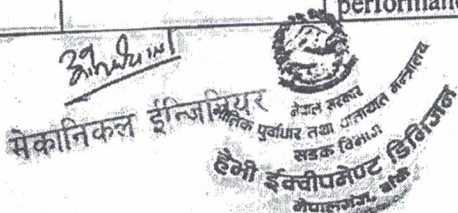 performanc
मेकानिकल ईन्जिनियर
नेपाल सरकार
भौतिक पूर्वाधार तथा यातायात मन्त्रालय
सडक विभाग
हेभी ईक्वीपमेण्ट डिभिजन
नेपालगंज, बाँके